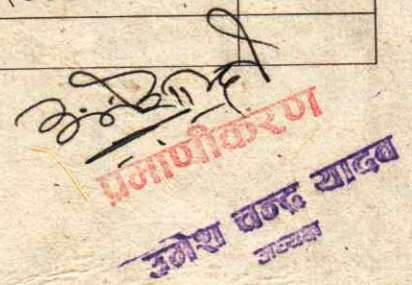 प्रमाणीकरण
उमेश चन्द्र यादव
अध्यक्ष